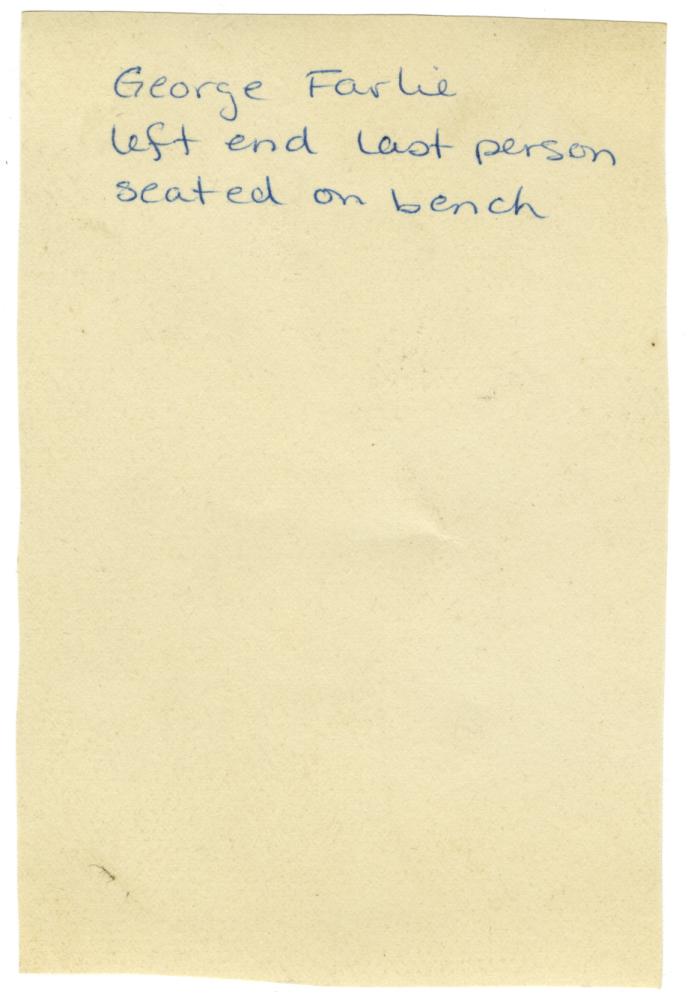 George Farlie
left end last person
seated on bench